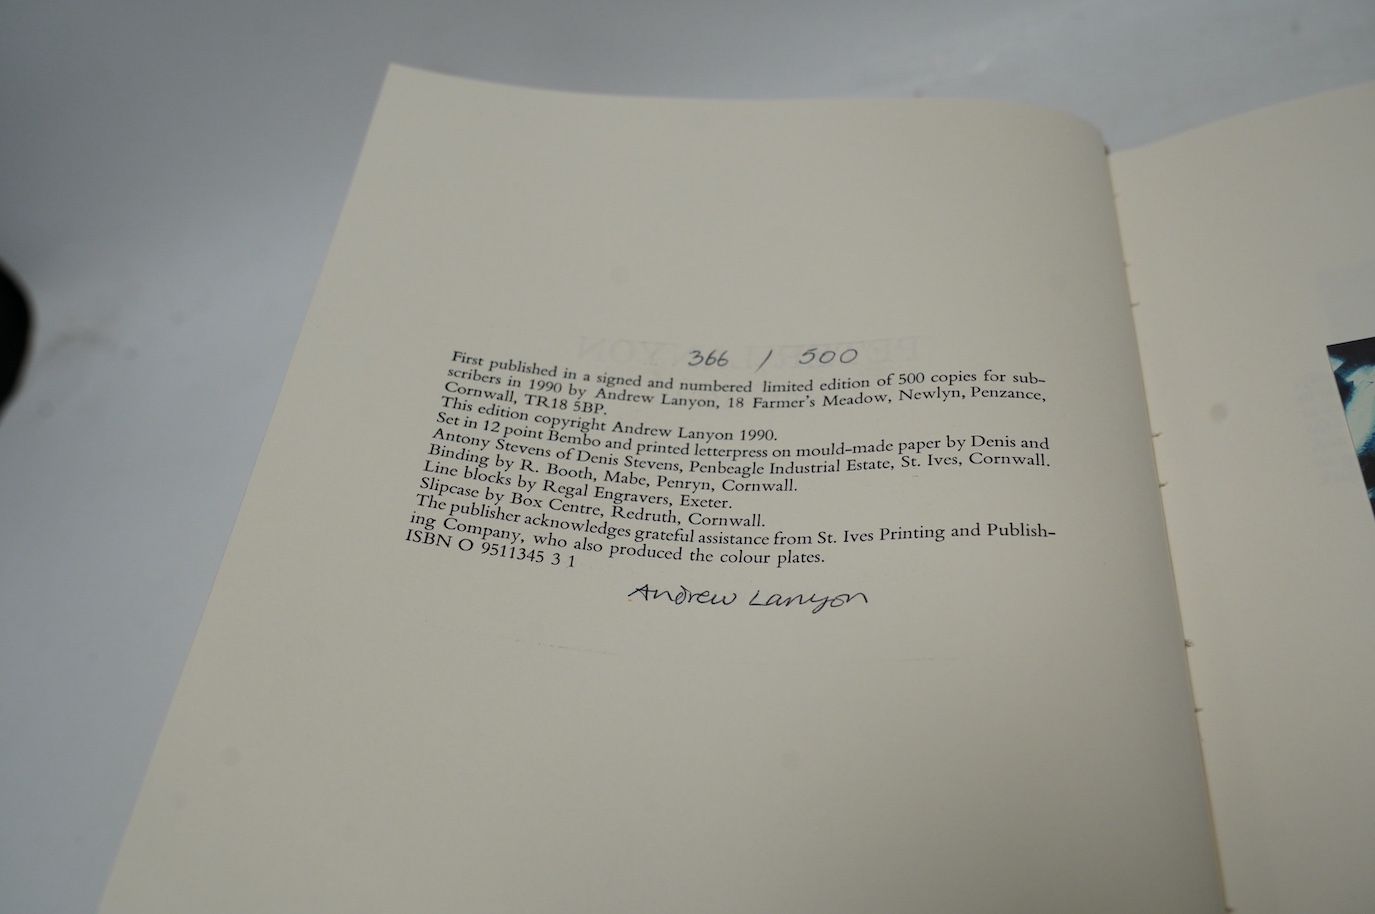 366 / 500
First published in a signed and numbered limited edition of 500 copies for sub-
scribers in 1990 by Andrew Lanyon, 18 Farmer's Meadow, Newlyn, Penzance,
Cornwall, TR18 5BP.
This edition copyright Andrew Lanyon 1990.
Set in 12 point Bembo and printed letterpress on mould-made paper by Denis and
Antony Stevens of Denis Stevens, Penbeagle Industrial Estate, St. Ives, Cornwall.
Binding by R. Booth, Mabe, Penryn, Cornwall.
Line blocks by Regal Engravers, Exeter.
Slipcase by Box Centre, Redruth, Cornwall.
The publisher acknowledges grateful assistance from St. Ives Printing and Publish-
ing Company, who also produced the colour plates.
ISBN O 9511345 3 1
Andrew Lanyon